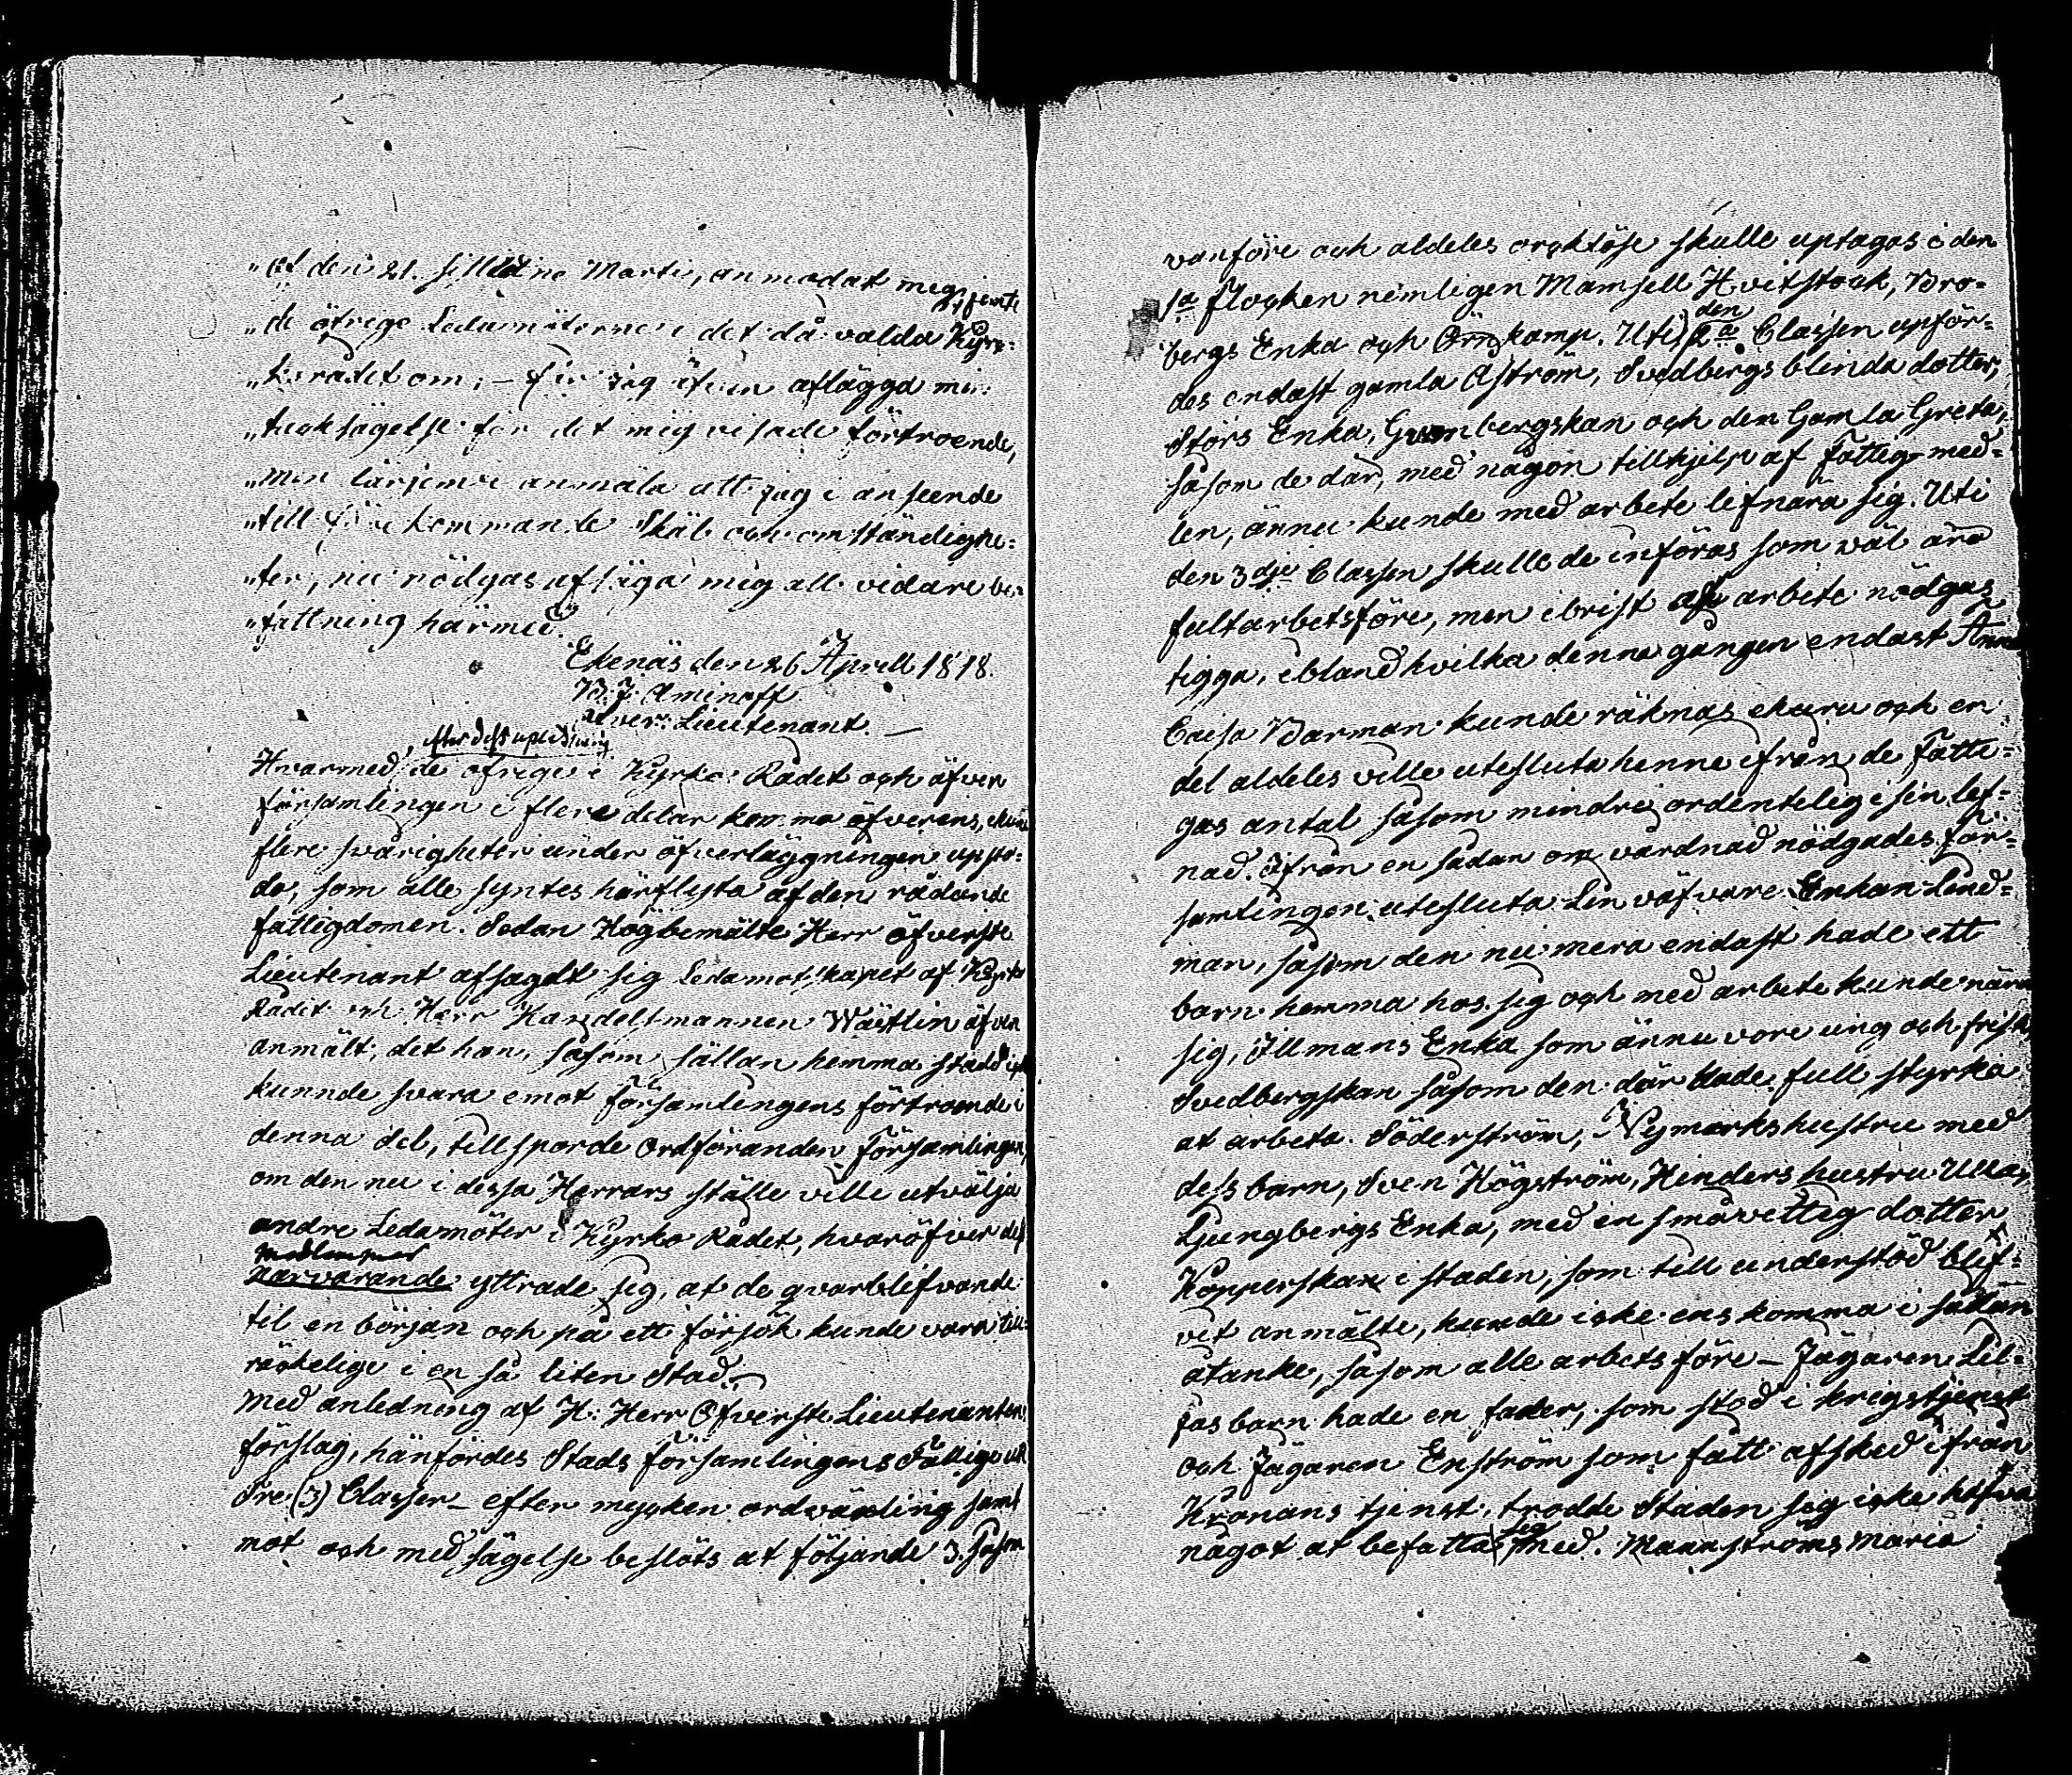 "at den 21. sistledne Marti, anmodat mig, jemte
"de öfrige Ledamöterne i det då valda Kyr-
"ko rådet om, - får jag äfven aflägga min
"tacksägelse för det mig visade förtroende,
"men lärjemte anmäla att jag i anseende
"till förekommande Skäl och omständighe-
"ter, nu nödgas afsäga mig all vidare be-
"fattning härmed.
Ekenäs den 26 Aprill 1818.
B. J. Aminoff
Öfver Lieutenant.
efter dess upläsning
Hvarmed de öfrige i Kyrko Rådet och äfven
församlingen i flere delar komma öfverens, ehuru
flere svårigheter under öfverläggningen uppsto-
do, som alle syntes härflyta af den rådande
fattigdomen. Sedan Högbemälte Herr öfverste
Lieutenant afsagdt sig Ledamotskapet af Kyrko
Rådet och Herr Handelsmannen Wästlin äfven
anmält, det han, såsom sällan hemma stadd icke
kunnde svara emot Församlingens förtroende i
denna del, tillsporde Ordföranden Församlingen,
om den nu i dessa Herrars ställe ville utvälja
andre Ledamöter i Kyrko Rådet, hvaröfver dess
medlemmar
närvarande yttrade sig, at de qvarblifvande
til en början och på ett försök kunde vara till-
räckelige i en så liten Stad. -
Med anledning af H: Herr Öfverste Lieutenantens
förslag, hänfördes Stads Församlingens Fattige uti
Tre (3) Classer - efter mycken ordväxling samt
mot och med sägelse beslöts at följande 3. såsom
vanföre och aldeles orcklöse skulle uptagas i den
1a Flocken nemligen Mamsell Hvitstock, Bro-
bergs Enka och Örnkamp. Uti den 2a Classen upför-
des endast gamla Åström, Svedbergs blinda dotter,
Störs Enka, Grönbergskan och den Gamla Greta,
såsom de där, med någon tillhjelp af Fattig med-
len, ännu kunde med arbete lifnära sig. Uti
den 3dje Classen skulle de införas som väl äro
fultarbetsföre, men i brist af arbete nödgas
tigga, ibland hvilka denna gången endast Anna
Caisa Barman kunde räknas ehuru och en
del aldeles ville utesluta henne ifrån de Fatti-
gas antal såsom mindre ordentelig i sin lef-
nad. Ifrån en sådan omvårdnad nödgades För-
samlingen utesluta Lin väfvare Enkan Lind-
man, såsom den nu mera endast hade ett
barn hemma hos sig och med arbete kunde nära
sig, Illmans Enka som ännu vore ung och frisk
Svedbergskan såsom den där hade full styrka
at arbeta. Söderström, Nymarks hustru med
dess barn, Sven Högström, Hinders hustru Ulla,
Ljungbergs Enka, med en småvettig dotter
Kopperskan i staden, som till understöd blif-
vit anmälte, kunde icke ens komma i sådan
åtanke, såsom alle arbetsföre - Jägaren Lil-
jas barn hade en fader, som stod i krigstjenst
och Jägaren Enström som fått afsked ifrån
Kronans tjenst, trodde Staden sig icke hafva
något at befatta sig med. Mannströms Maria